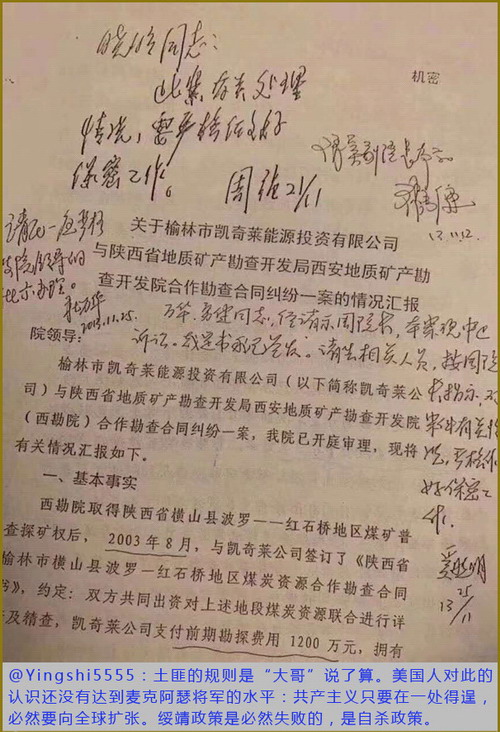 机密
晓明同志：
此案有关处理
情况，要严格做好
保密工作。
周强 21/11
13.11.12
关于榆林市凯奇莱能源投资有限公司
与陕西省地质矿产勘查开发局西安地质矿产勘
查开发院合作勘查合同纠纷一案的情况汇报
请民一庭严格
按院领导的
批示办理。
杜万华
2013.11.25.
院领导：
同志，经请示周院长，本案现中止
诉讼。请告相关人员，按周院
长指示，对
案件有关情
况，严格做
好保密工
作。
奚晓明
25/11
13
榆林市凯奇莱能源投资有限公司（以下简称凯奇莱公
司）与陕西省地质矿产勘查开发局西安地质矿产勘查开发院
（西勘院）合作勘查合同纠纷一案，我院已开庭审理，现将
有关情况汇报如下。
一、基本事实
西勘院取得陕西省横山县波罗——红石桥地区煤矿普
查探矿权后，2003年8月，与凯奇莱公司签订了《陕西省
榆林市横山县波罗—红石桥地区煤炭资源合作勘查合同
书》，约定：双方共同出资对上述地段煤炭资源联合进行详
查及精查，凯奇莱公司支付前期勘探费用1200万元，拥有
@Yingshi5555：土匪的规则是“大哥”说了算。美国人对此的
认识还没有达到麦克阿瑟将军的水平：共产主义只要在一处得逞，
必然要向全球扩张。绥靖政策是必然失败的，是自杀政策。